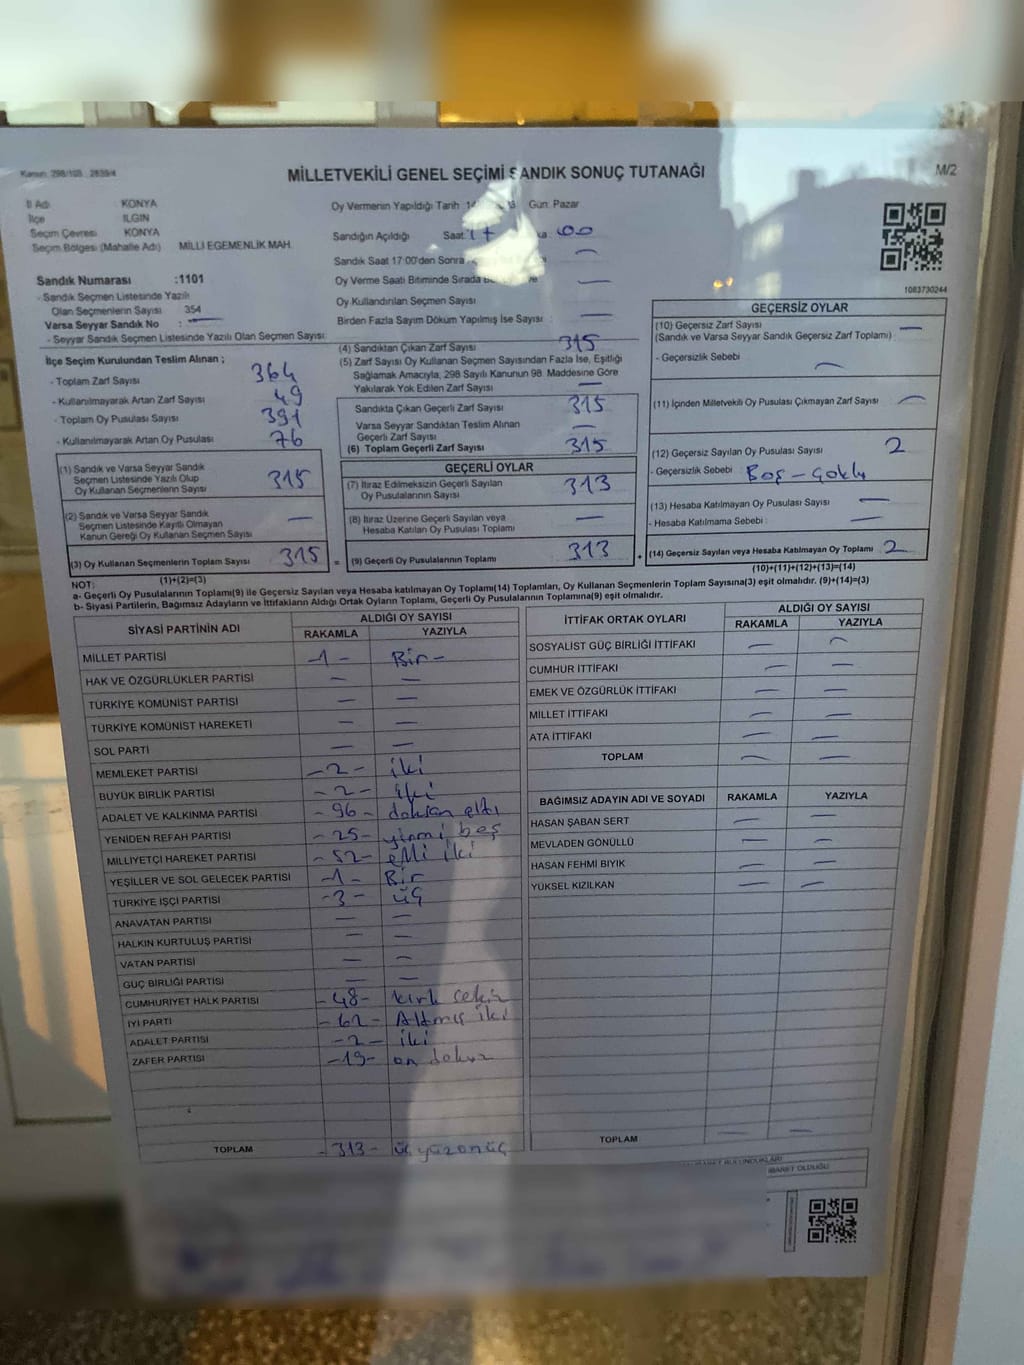 Kanun: 298/105 , 2839/4
MİLLETVEKİLİ GENEL SEÇİMİ SANDIK SONUÇ TUTANAĞI
M/2
İl Adı : KONYA
İlçe : ILGIN
Seçim Çevresi : KONYA
Seçim Bölgesi (Mahalle Adı) MİLLİ EGEMENLİK MAH.
Sandık Numarası :1101
- Sandık Seçmen Listesinde Yazılı
Olan Seçmenlerin Sayısı 354
Varsa Seyyar Sandık No : —
- Seyyar Sandık Seçmen Listesinde Yazılı Olan Seçmen Sayısı:
Oy Vermenin Yapıldığı Tarih Gün: Pazar
Sandığın Açıldığı Saat: 17 00
Sandık Saat 17:00'den Sonra —
Oy Verme Saati Bitiminde Sırada —
Oy Kullandırılan Seçmen Sayısı —
Birden Fazla Sayım Döküm Yapılmış İse Sayısı : —
1083730244
İlçe Seçim Kurulundan Teslim Alınan ;
- Toplam Zarf Sayısı 364
- Kullanılmayarak Artan Zarf Sayısı 49
- Toplam Oy Pusulası Sayısı 391
- Kullanılmayarak Artan Oy Pusulası 76
(1) Sandık ve Varsa Seyyar Sandık
Seçmen Listesinde Yazılı Olup
Oy Kullanan Seçmenlerin Sayısı 315
(2) Sandık ve Varsa Seyyar Sandık
Seçmen Listesinde Kayıtlı Olmayan
Kanun Gereği Oy Kullanan Seçmen Sayısı —
(3) Oy Kullanan Seçmenlerin Toplam Sayısı 315
(1)+(2)=(3)
(4) Sandıktan Çıkan Zarf Sayısı 315
(5) Zarf Sayısı Oy Kullanan Seçmen Sayısından Fazla İse, Eşitliği
Sağlamak Amacıyla, 298 Sayılı Kanunun 98. Maddesine Göre
Yakılarak Yok Edilen Zarf Sayısı —
Sandıkta Çıkan Geçerli Zarf Sayısı 315
Varsa Seyyar Sandıktan Teslim Alınan
Geçerli Zarf Sayısı —
(6) Toplam Geçerli Zarf Sayısı 315
GEÇERLİ OYLAR
(7) İtiraz Edilmeksizin Geçerli Sayılan
Oy Pusulalarının Sayısı 313
(8) İtiraz Üzerine Geçerli Sayılan veya
Hesaba Katılan Oy Pusulası Toplamı —
= (9) Geçerli Oy Pusulalarının Toplamı 313
GEÇERSİZ OYLAR
(10) Geçersiz Zarf Sayısı —
(Sandık ve Varsa Seyyar Sandık Geçersiz Zarf Toplamı)
- Geçersizlik Sebebi —
(11) İçinden Milletvekili Oy Pusulası Çıkmayan Zarf Sayısı —
(12) Geçersiz Sayılan Oy Pusulası Sayısı 2
- Geçersizlik Sebebi : Boş - Çoklu
(13) Hesaba Katılmayan Oy Pusulası Sayısı —
- Hesaba Katılmama Sebebi : —
+ (14) Geçersiz Sayılan veya Hesaba Katılmayan Oy Toplamı 2
(10)+(11)+(12)+(13)=(14)
NOT:
a- Geçerli Oy Pusulalarının Toplamı(9) ile Geçersiz Sayılan veya Hesaba katılmayan Oy Toplamı(14) Toplamları, Oy Kullanan Seçmenlerin Toplam Sayısına(3) eşit olmalıdır. (9)+(14)=(3)
b- Siyasi Partilerin, Bağımsız Adayların ve İttifakların Aldığı Ortak Oyların Toplamı, Geçerli Oy Pusulalarının Toplamına(9) eşit olmalıdır.
SİYASİ PARTİNİN ADI ALDIĞI OY SAYISI
RAKAMLA YAZIYLA
MİLLET PARTİSİ -1- Bir-
HAK VE ÖZGÜRLÜKLER PARTİSİ — —
TÜRKİYE KOMÜNİST PARTİSİ — —
TÜRKİYE KOMÜNİST HAREKETİ — —
SOL PARTİ — —
MEMLEKET PARTİSİ -2- iki
BÜYÜK BİRLİK PARTİSİ -2- iki
ADALET VE KALKINMA PARTİSİ -96- doksan altı
YENİDEN REFAH PARTİSİ -25- yirmi beş
MİLLİYETÇİ HAREKET PARTİSİ -52- elli iki
YEŞİLLER VE SOL GELECEK PARTİSİ -1- Bir
TÜRKİYE İŞÇİ PARTİSİ -3- üç
ANAVATAN PARTİSİ — —
HALKIN KURTULUŞ PARTİSİ — —
VATAN PARTİSİ — —
GÜÇ BİRLİĞİ PARTİSİ — —
CUMHURİYET HALK PARTİSİ -48- kırk cekiz
İYİ PARTİ -62- Altmış iki
ADALET PARTİSİ -2- iki
ZAFER PARTİSİ -19- on dokuz
TOPLAM -313- üç yüzonüç
İTTİFAK ORTAK OYLARI ALDIĞI OY SAYISI
RAKAMLA YAZIYLA
SOSYALİST GÜÇ BİRLİĞİ İTTİFAKI — —
CUMHUR İTTİFAKI — —
EMEK VE ÖZGÜRLÜK İTTİFAKI — —
MİLLET İTTİFAKI — —
ATA İTTİFAKI — —
TOPLAM — —
BAĞIMSIZ ADAYIN ADI VE SOYADI RAKAMLA YAZIYLA
HASAN ŞABAN SERT — —
MEVLADEN GÖNÜLLÜ — —
HASAN FEHMİ BIYIK — —
YÜKSEL KIZILKAN — —
TOPLAM — —
İBARET OLDUĞU